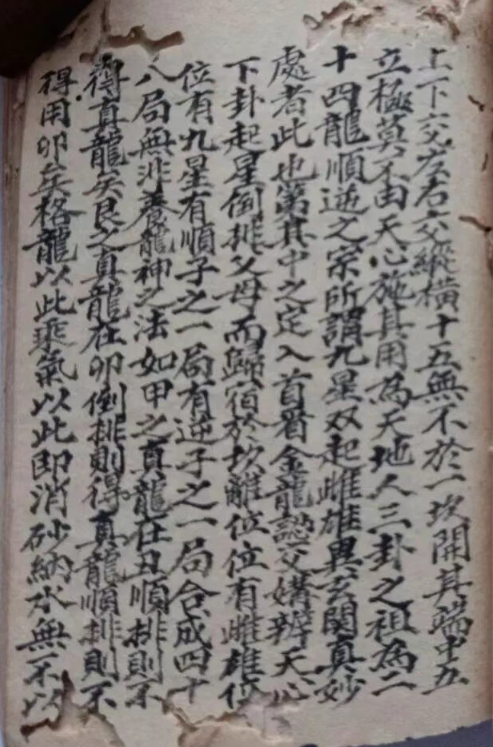 上下交左右交縱橫十五無不於一坎開其端中五
立極莫不由天心施其用為天地人三卦之祖為二
十四龍順逆之宗所謂九星双起雌雄異玄關真妙
處者此也第其中之定入首看金龍認父媾辨天心
下卦起星倒排父母而歸宿於坎離位位有雌雄位
位有九星有順子之一局有逆子之一局合成四十
八局無非養龍神之法如甲之真龍在丑順排則不
得真龍矣艮之真龍在卯倒排則得真龍順排則不
得用卯矣格龍以此乘氣以此即消砂納水無不以